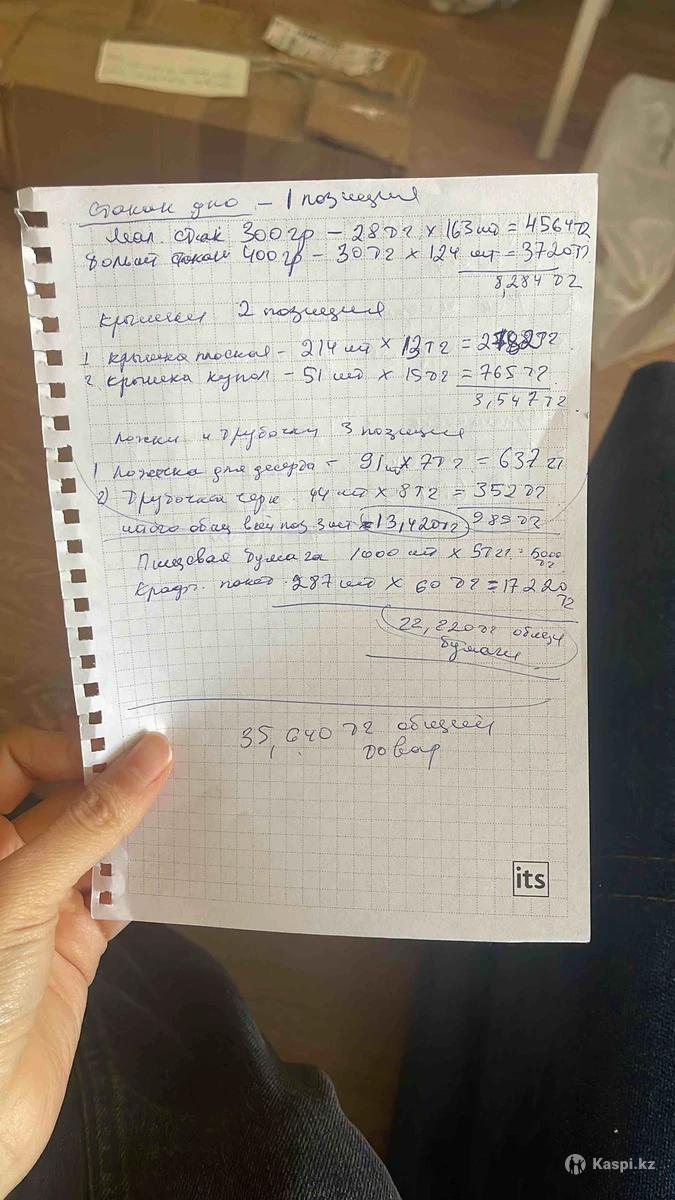 Стакан дно – 1 позиция
Мал. стак 300гр – 28тг × 163шт = 4564тг
большой стакан 400гр – 30тг × 124 шт = 3720тг
8,284тг
Крышечки 2 позиция
1 крышка плоская – 214 шт × 13тг = 2782тг
2. крышка купол – 51 шт × 15тг = 765тг
3,547тг
Ложки и трубочки 3 позиция
1) ложечка для десерта – 91шт × 7тг = 637тг
2) Трубочки черн 44 шт × 8тг = 352тг
итого общ всей поз. 3 шт 13,420тг 989тг
Пищевая бумага 1000 шт × 5тг = 5000тг
Крафт. пакет 287 шт × 60тг = 17220тг
22,220тг общая
бумаги
35,640тг общий
товар
its
Kaspi.kz